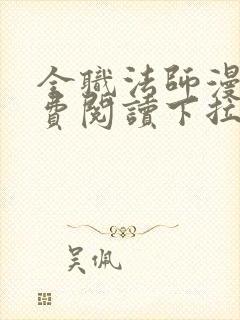 全職法師漫
費閱讀下拉
吴佩